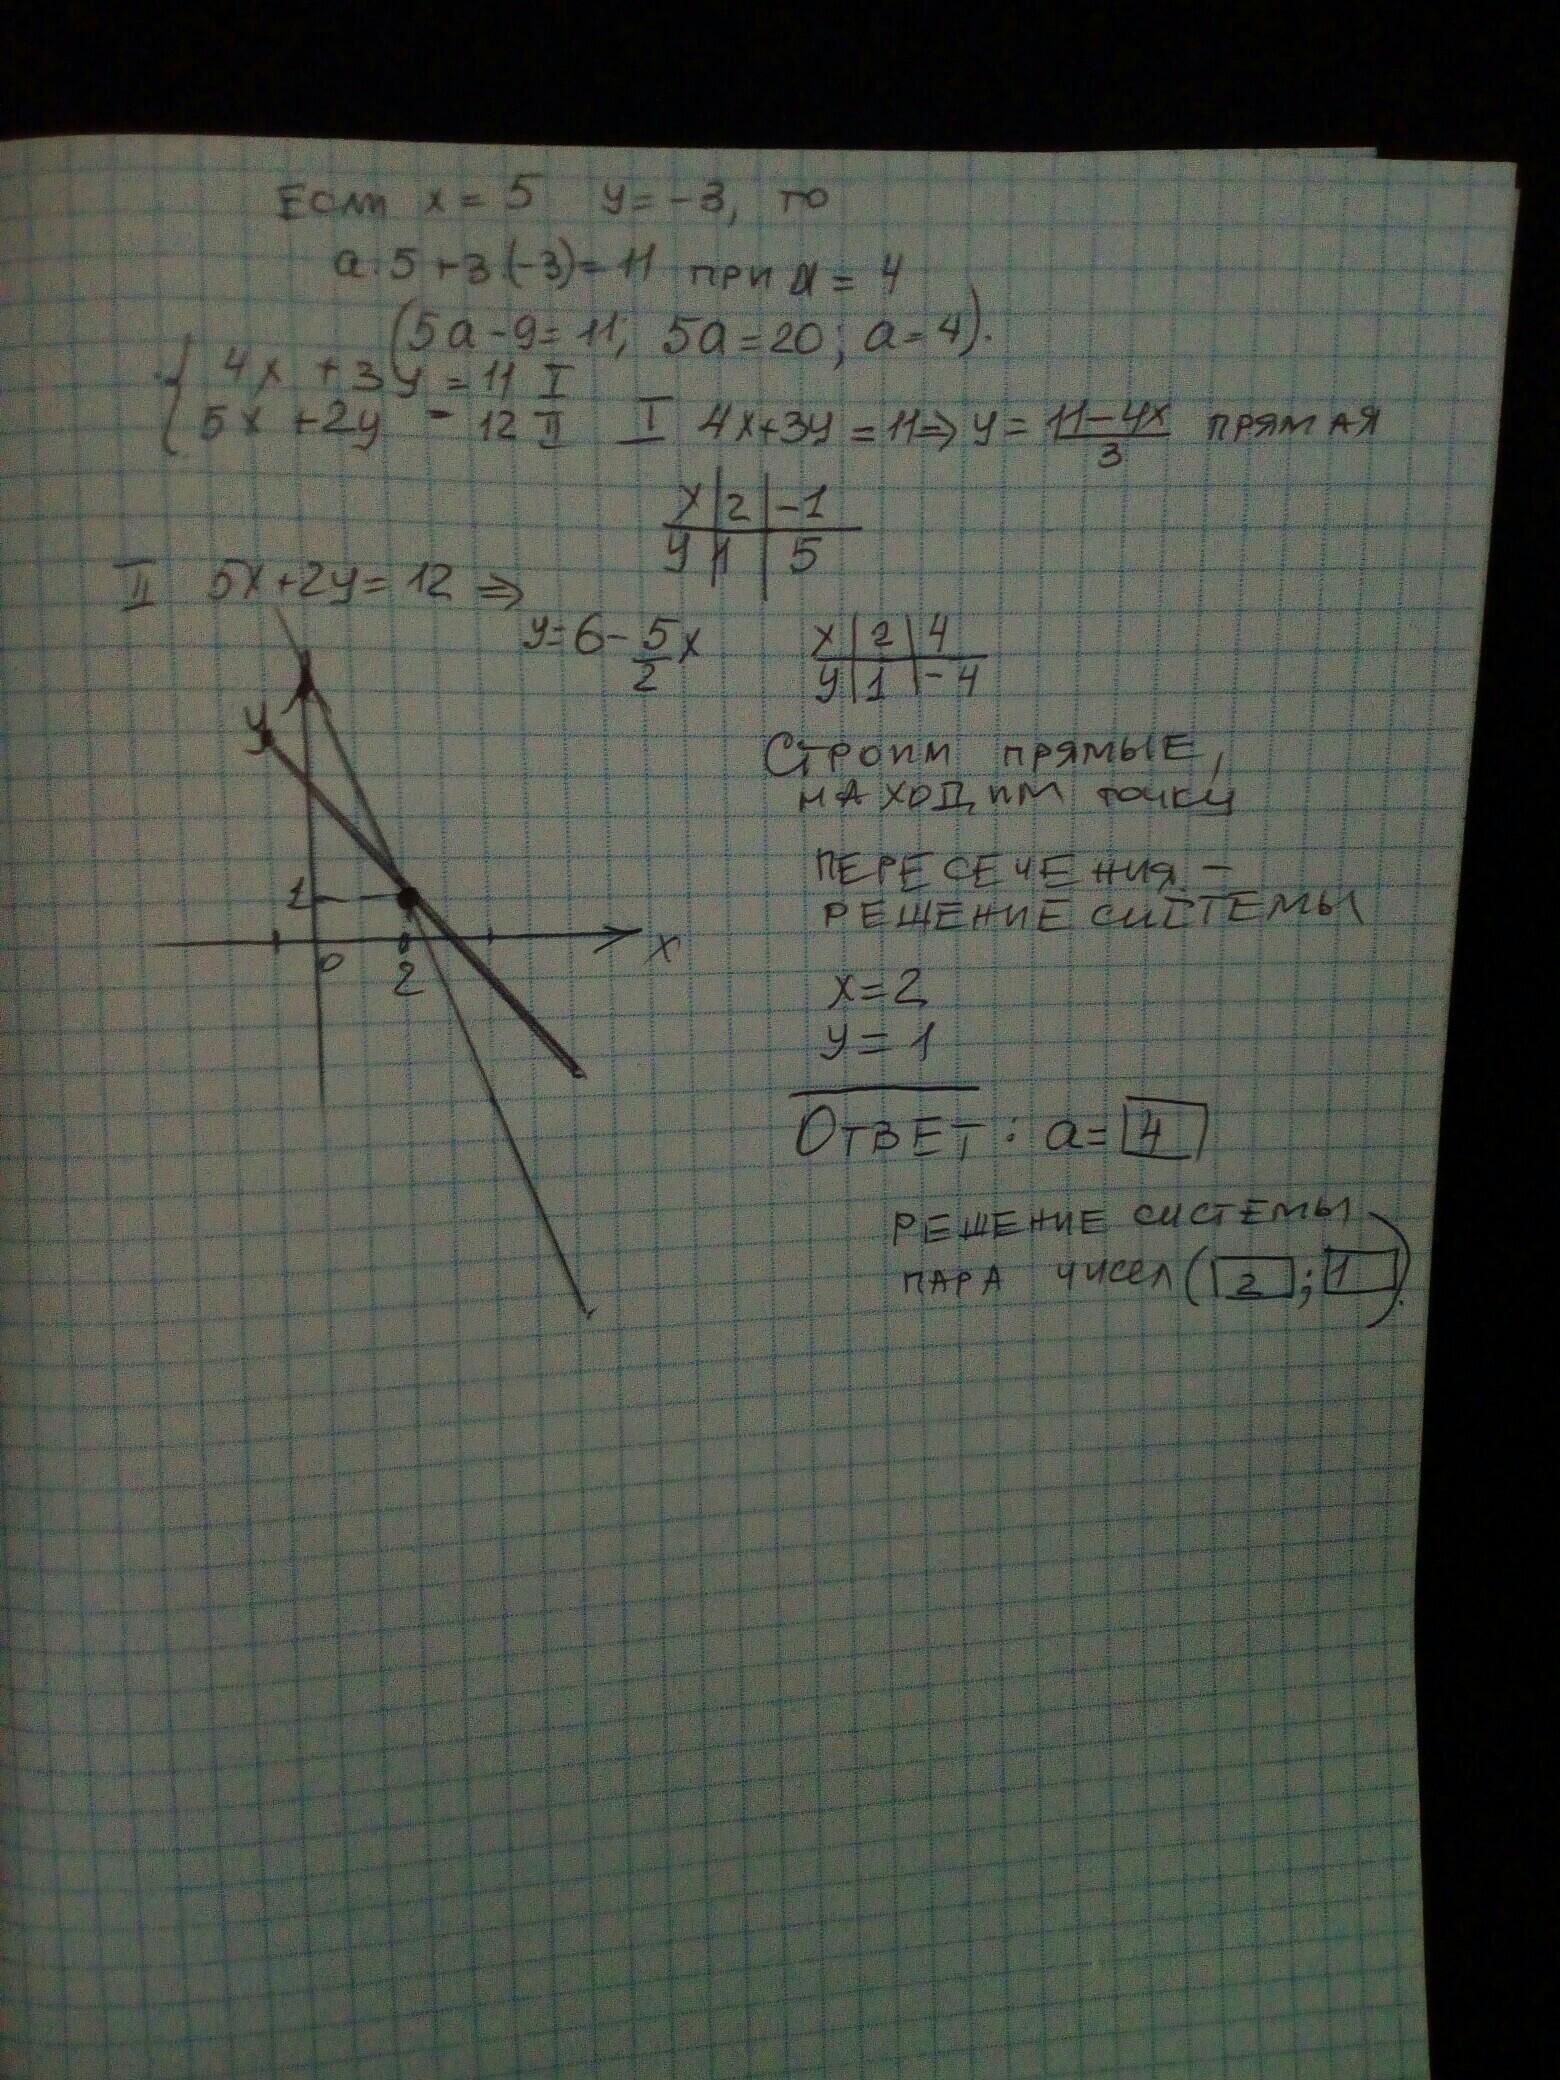 Если x = 5 y = -3, то
a·5+3·(-3)=11 при a = 4
(5a-9=11; 5a=20; a=4).
{ 4x + 3y = 11 I
5x + 2y = 12 II I 4x+3y=11⇒ y = (11-4x)/3 прямая
x | 2 | -1
y | 1 | 5
II 5x+2y=12 ⇒
y=6-5/2x
x | 2 | 4
y | 1 | -4
Строим прямые,
находим точку
пересечения -
решение системы
x=2
y=1
Ответ: a= 4
решение системы
пара чисел (2; 1).
y
1
0
2
x